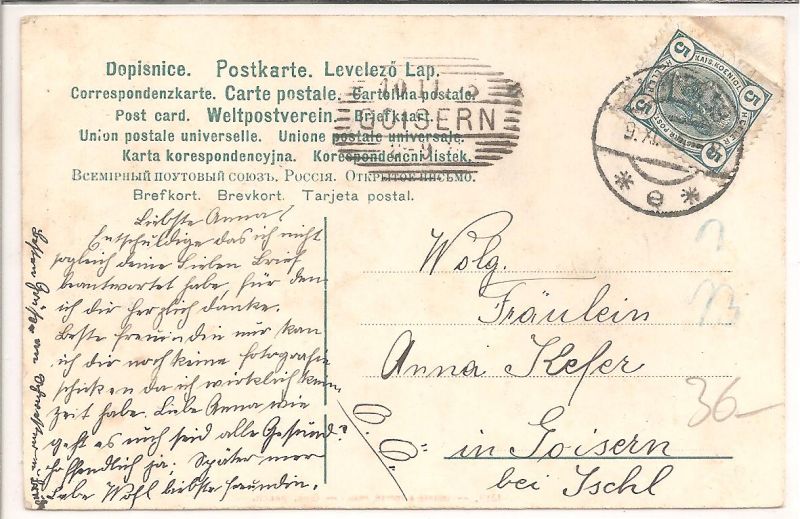 Dopisnice. Postkarte. Levelező Lap.
Correspondenzkarte. Carte postale. Cartolina postale.
Post card. Weltpostverein. Briefkaart.
Union postale universelle. Unione postale universale.
Karta korespondencyjna. Korespondenčni listek.
Всемірный поутовый союзъ. Россія. Открытое письмо.
Brefkort. Brevkort. Tarjeta postal.
GOISERN
5 HELLER 5
KAIS. KOENIGL.
5 HELLER 5
Liebste Anna!
Entschuldige das ich nicht
sogleich deine Lieben Brief
beantwortet habe, für den
ich dir herzlich danke.
Beste freundin nur kan
ich dir noch keine fotografie
schicken da ich wirklich keine
zeit habe. Liebe Anna wie
geht es euch seid alle Gesund?
hoffendlich ja. Später mer
Lebe Wohl liebste freundin.
Besten Grüße von
Wolg.
Fräulein
Anna Kefer
in Goisern
bei Ischl
O.Ö.
36-